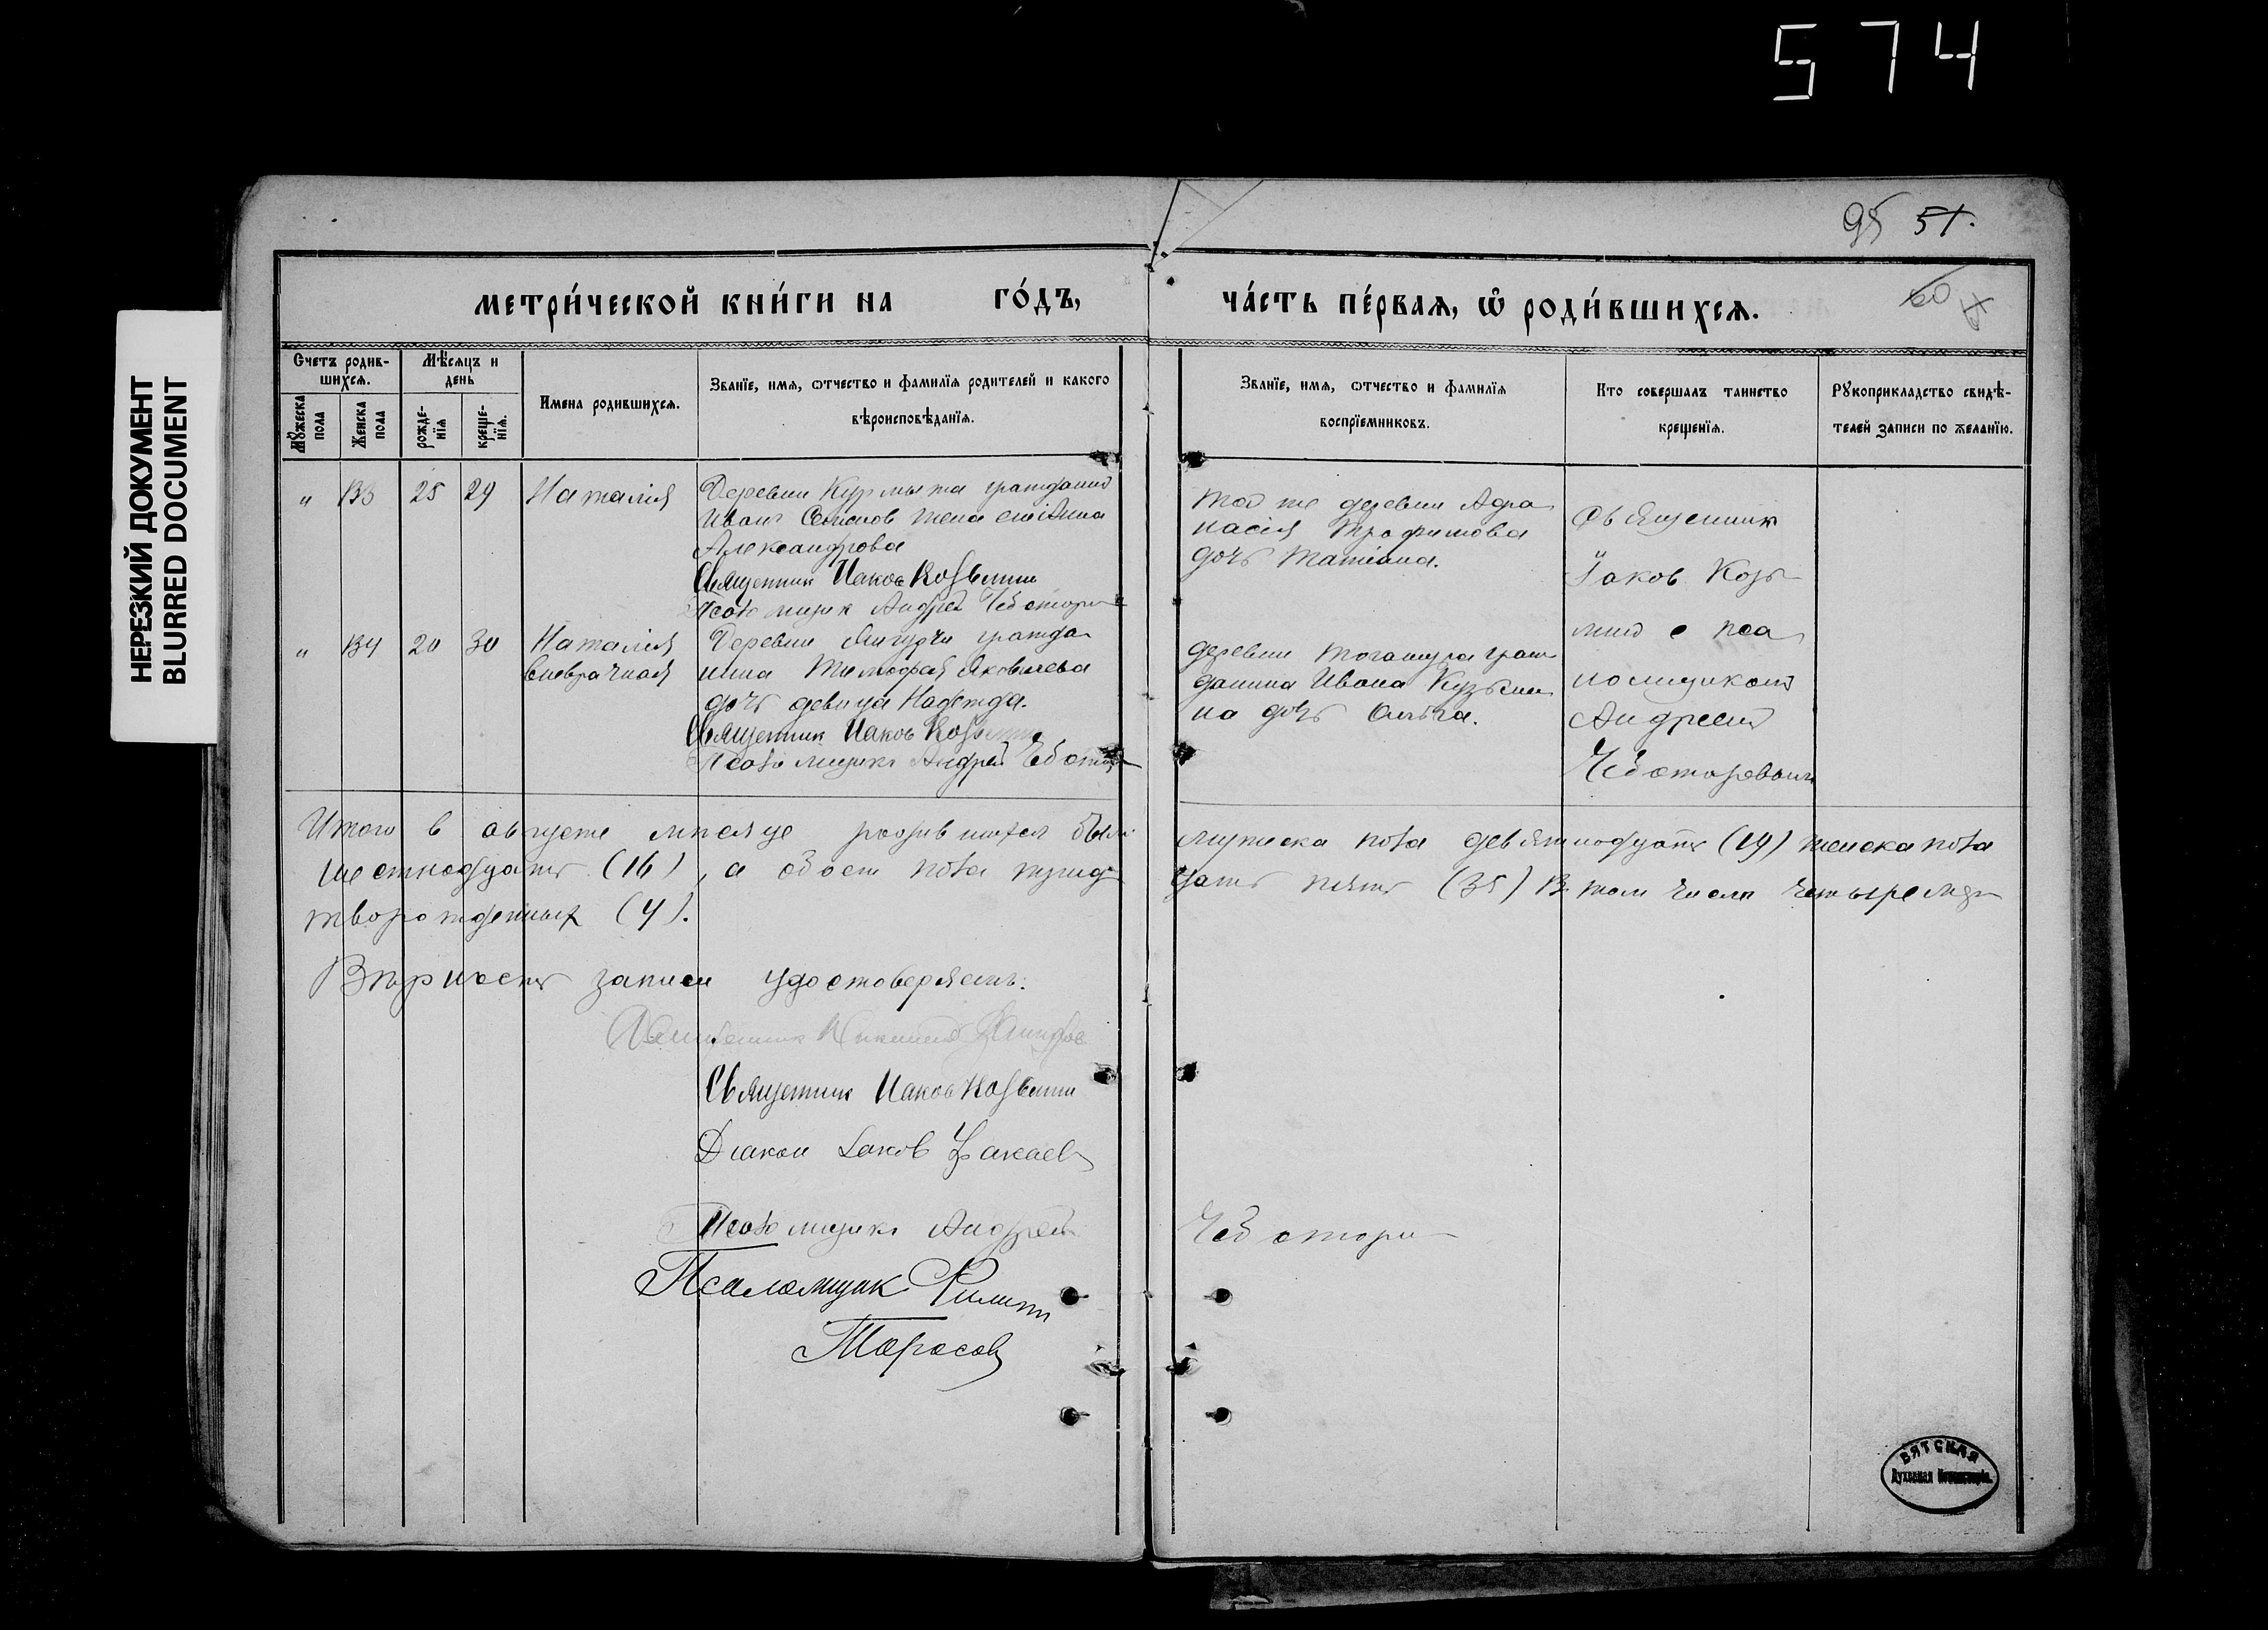 574
НЕРЕЗКИЙ ДОКУМЕНТ
BLURRED DOCUMENT
95 51.
60
метри́ческой кни́ги на го́дъ,
ча́сть пе́рвая, ѡ҆ роди́вшихсѧ.
Счетъ родив-
шихсѧ.
Мѣсѧцъ и
день
Мꙋжеска
пола
Женска
пола
рожде-
нїѧ
креще-
нїѧ.
Имена родившихсѧ.
Званїе, имѧ, ѿчество и фамилїѧ родителей и какого
вѣроисповѣданїѧ.
Званїе, имѧ, ѿчество и фамилїѧ
воспрїемниковъ.
Кто совершалъ таинство
крещенїѧ.
Рꙋкоприкладство свидѣ-
телей записи по желанїю.
„ 33 25 29 Наталія
Деревни Курмыжа гражданин
Иван Семенов жена его Анна
Александрова
Священник Иаков Козьмин
Псаломщик Андрей Чеботари
Той же деревни Афа
насія Трофимова
дочь Татіана.
Священник
Іаков Козь
мин с пса
ломщиком
Андреем
Чеботаревым
„ 34 20 30 Наталія
внебрачная
Деревни гражда
нина Тимофея Яковлева
дочь девица Надежда.
Священник Иаков Козьмин
Псаломщикъ Андрей Чеботари
деревни граж
данина Ивана Кузьми
на дочь Ольга.
Итого в августе мѣсяце родившихся было
мужеска пола девятнадцать (19) женска пола
шестнадцать (16), а обоего пола тридц
цать пять (35) В том числе четыре мер
творожденных (4).
Вѣрность записи удостоверяем:
Священник
Священник Иаков Козьмин
Діакон Іаков
Псаломщикъ Андрей
Чеботари
Псаломщик Филипп
Тарасов
ВЯТСКАЯ
Духовная Консисторія.